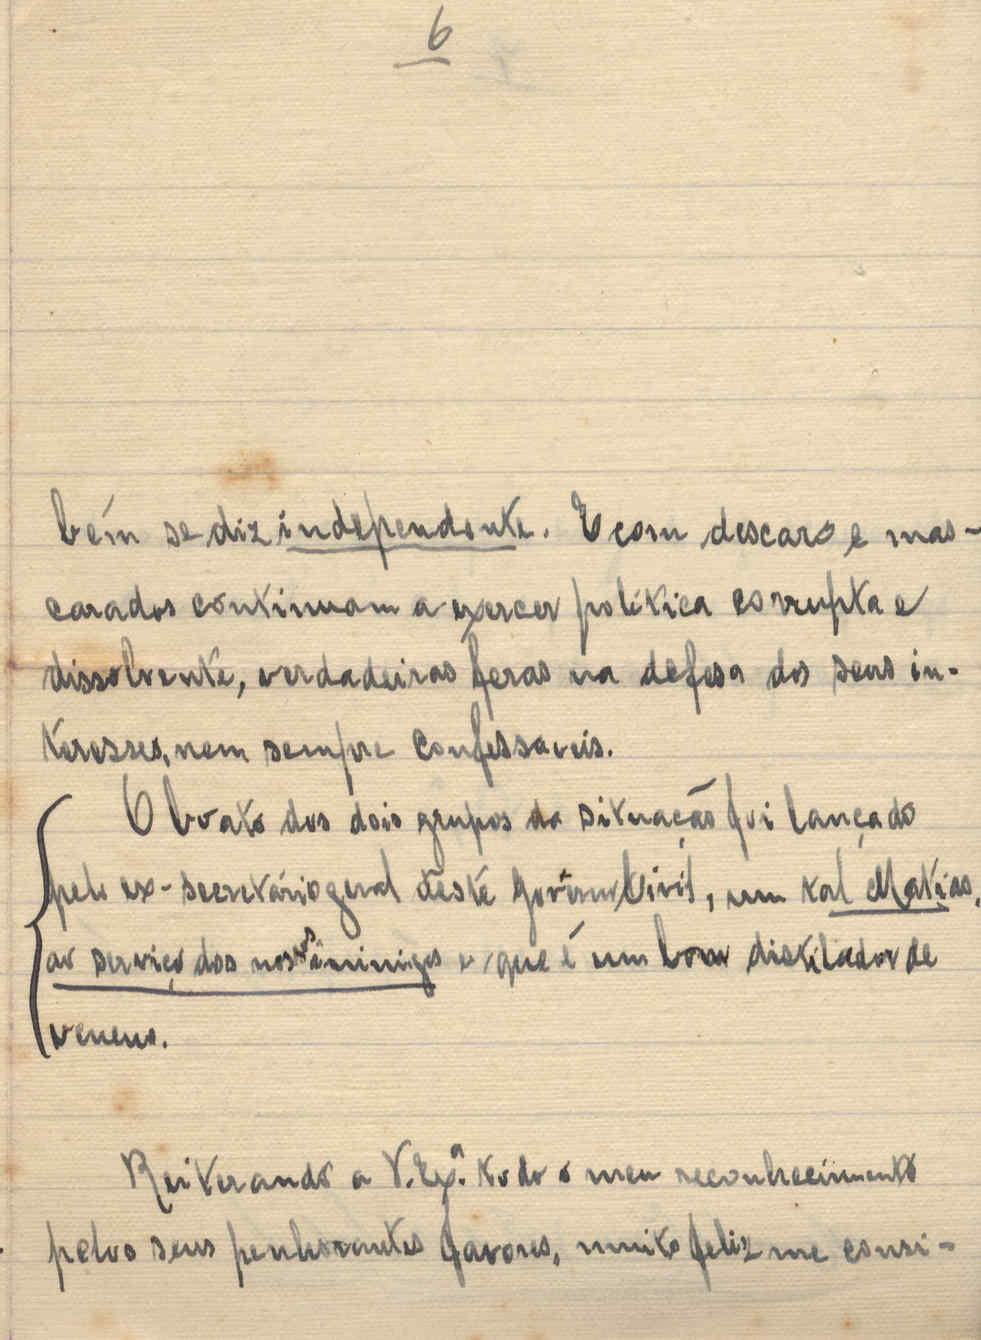 6
bém se diz independente. E com descaro e mas-
carados continuam a exercer política corrupta e
dissolvente, verdadeiras feras na defesa dos seus in-
teresses, nem sempre confessaveis.
O boato dos dois grupos da situação foi lançado
pelo ex-secretário geral deste Governo Civil, um tal Matias,
ao serviço dos nossos inimigos e que é um bom distilador de
veneno.
Reiterando a V. Exª. todo o meu reconhecimento
pelos seus penhorantes favores, muito feliz me consi-